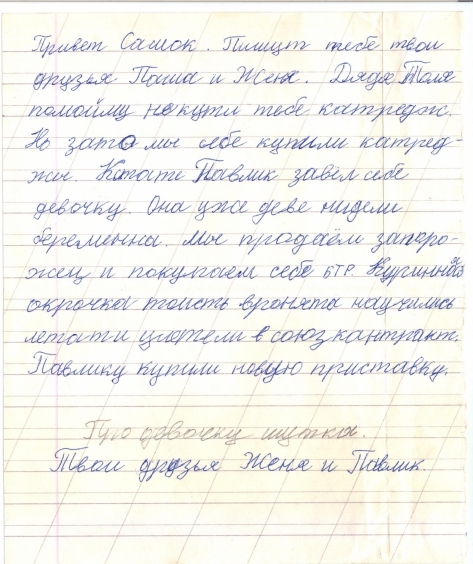 Привет Сашок. Пишут тебе твои
друзья Паша и Женя. Дядя Толя
помойму некупил тебе катредж.
Но зато мы себе купили катред-
жы. Кстате Павлик завёл себе
девочку. Она уже две нидели
беременна. Мы продаём запоро-
жец и покупаем себе БТР.
окрочка тоисть вронята научились
летат и улетели в союзкантракт.
Павлику купили новую приставку.
Про девочку шутка.
Твои друзья Женя и Павлик.